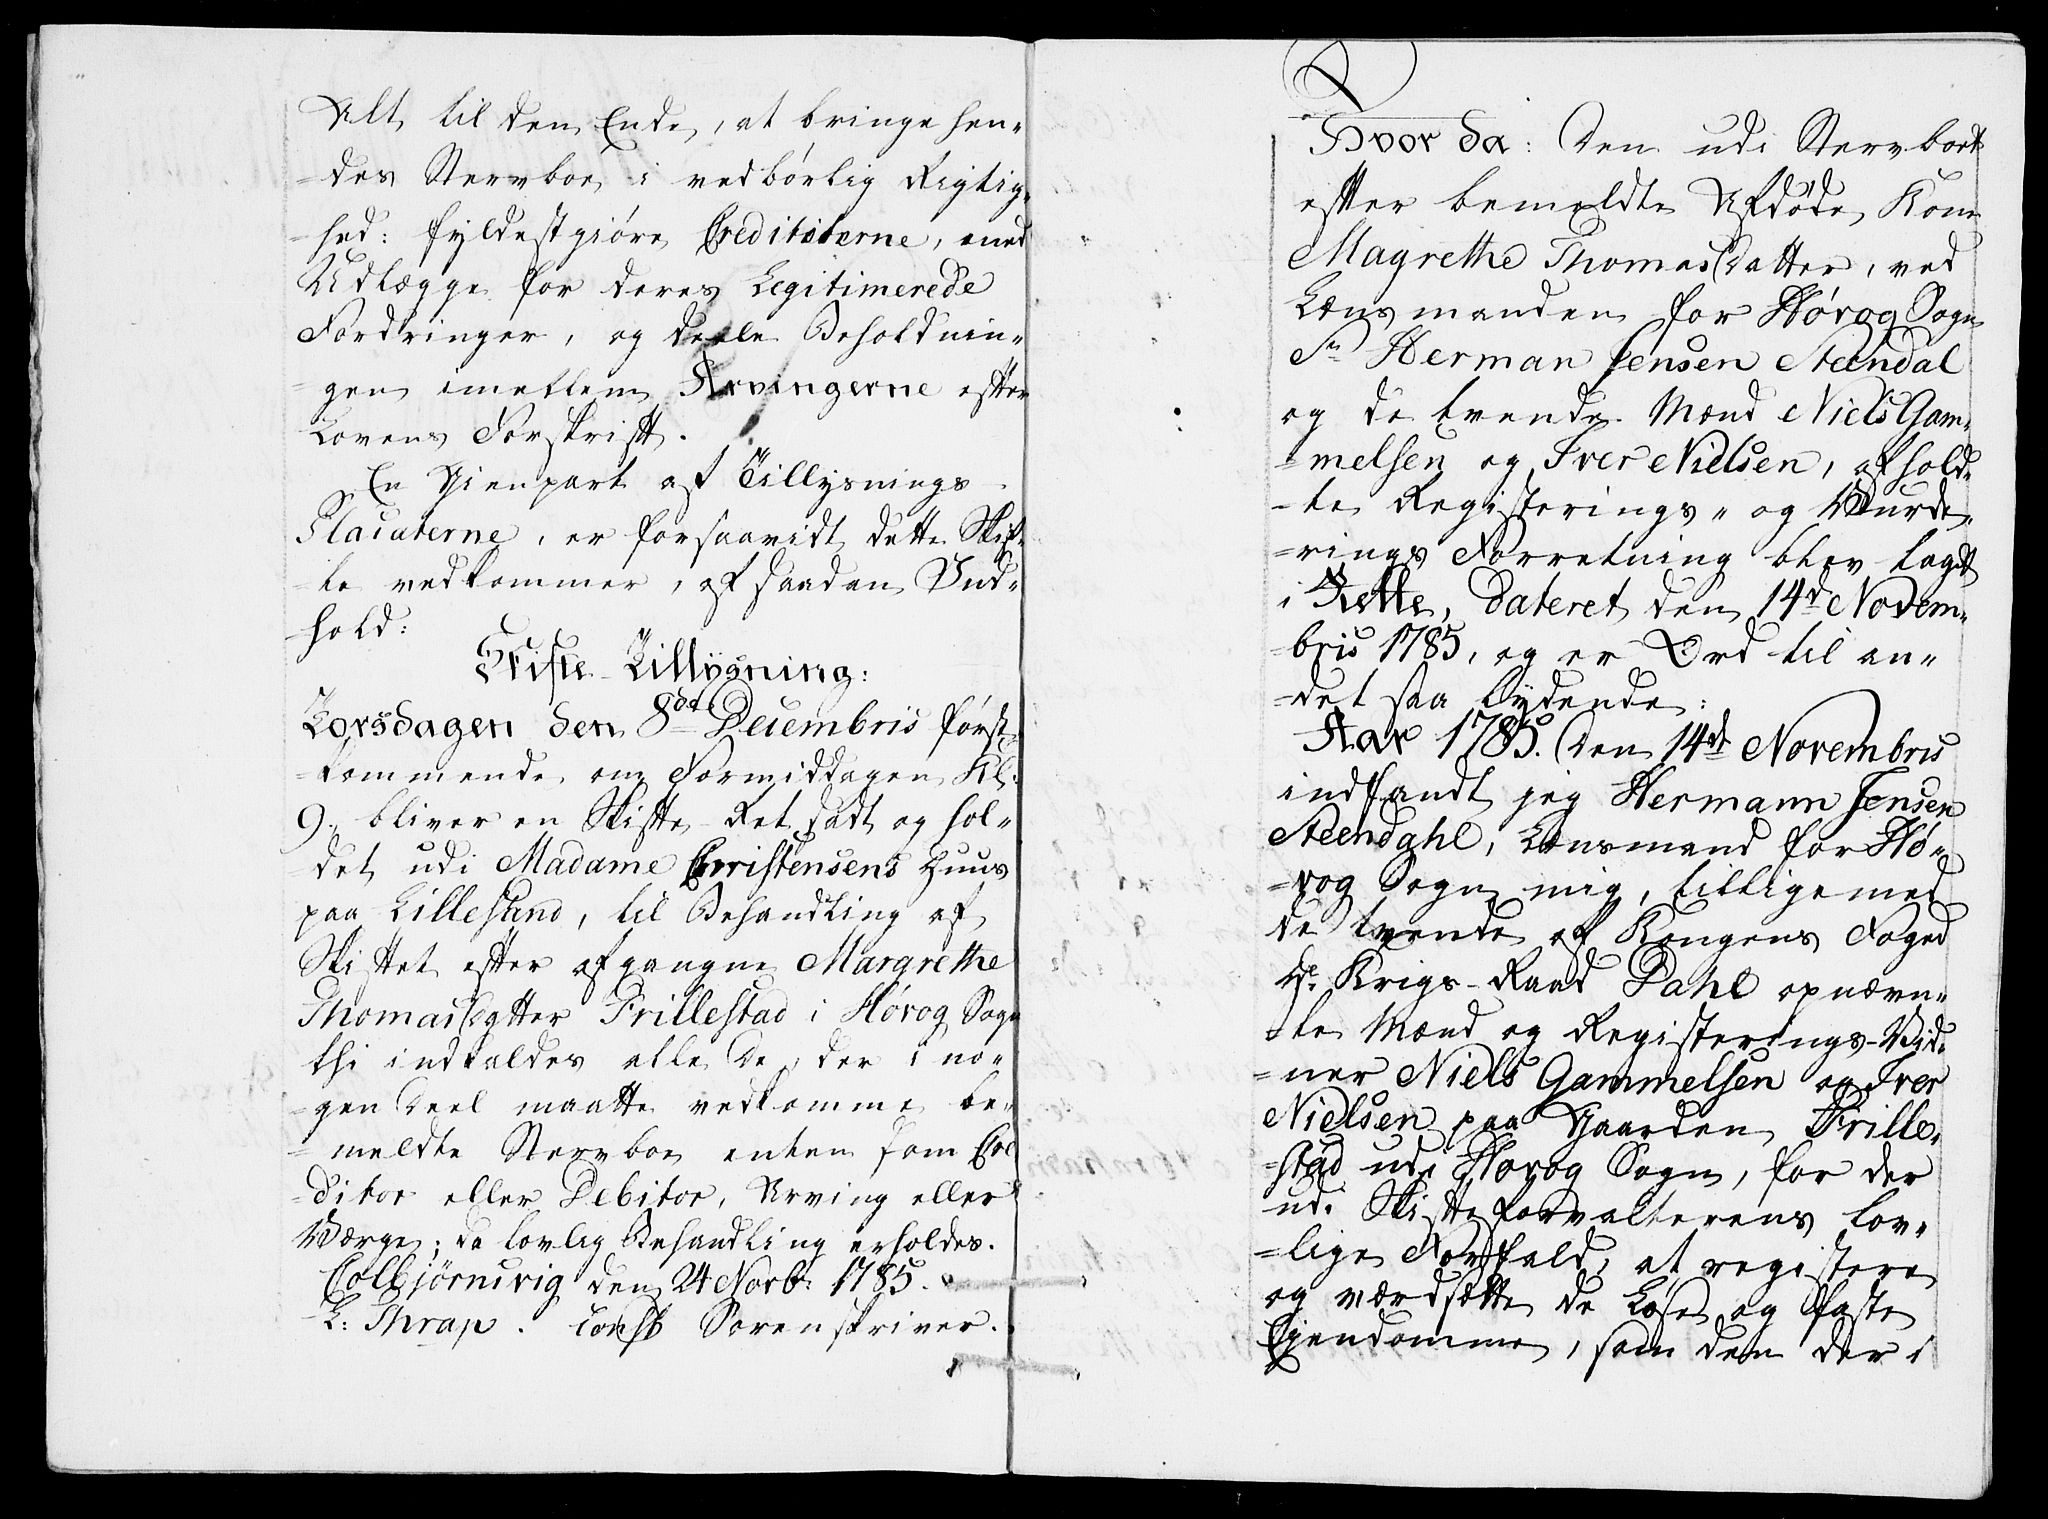 Alt til den Ende, at bringe hen-
=des Stervboe i vedbørlig Rigtig=
=hed: fyldestgiøre Creditorerne, med
Udlægge for deres Legitimerede
Fordringer, og deele Beholdnin-
=gen imellem Arvingerne efter
Lovens Forskrift.
En Gienpart af Tillysnings
Placaterne, er forsaavidt dette Skif-
=te vedkommer, af saadan Ind=
=hold:
Skifte-Tillysning:
Torsdagen den 8de Decembris først-
=kommende om Formiddagen Kl:
9. bliver en Skifte-Ret sadt og hol-
=det udi Madame Christensens Huus
paa Lillesand, til Behandling af
Skiftet efter afgangne Margrethe
Thomasdatter Trillestad i Høvog Sogn
thi indkaldes alle de, der i no-
=gen Deel maatte vedkomme be-
=meldte Stervboe enten som Cre
=ditor eller Debitor, Arving eller
Værge; da lovlig Behandling erholdes.
Colbjørnsvig den 24 Novb: 1785.
L: Thrap. const Sorenskriver.
Hvor da: Den udi Stervboet
efter bemeldte Afdøde Kone
Magrethe Thomasdatter, ved
Lænsmanden for Høvog Sogn
Sr Herman Jensen Steendal
og de tvende Mænd Niels Gam-
=melsen og Iver Nielsen, afhold-
=te Registerings- og Vurde-
=rings Forretning blev lagt
i Rette, dateret den 14de Novem-
=bris 1785, og er Ord til an-
=det saa lydende:
Aar 1785. Den 14de Novembris
indfandt jeg Hermann Jensen
Steendahl, Lænsmand for Hø-
=vog Sogn mig, tilligemed
de tvende af Kongens Foged
Hr. Krigs-Raad Dahl opnævn-
=te Mænd og Registerings-Vid-
=ner Niels Gammelsen og Iver
Nielsen paa Gaarden Trille-
=stad udi Høvog Sogn, for der
udi Skifteforvalterens lov-
=lige Forfald, at registere
og værdsætte de Løse og faste
Ejendomme, som den der i